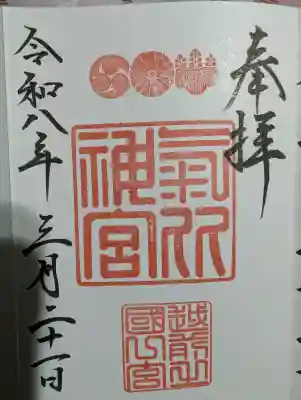 奉拝
氣比神宮
越前一國一宮
令和八年三月二十一日